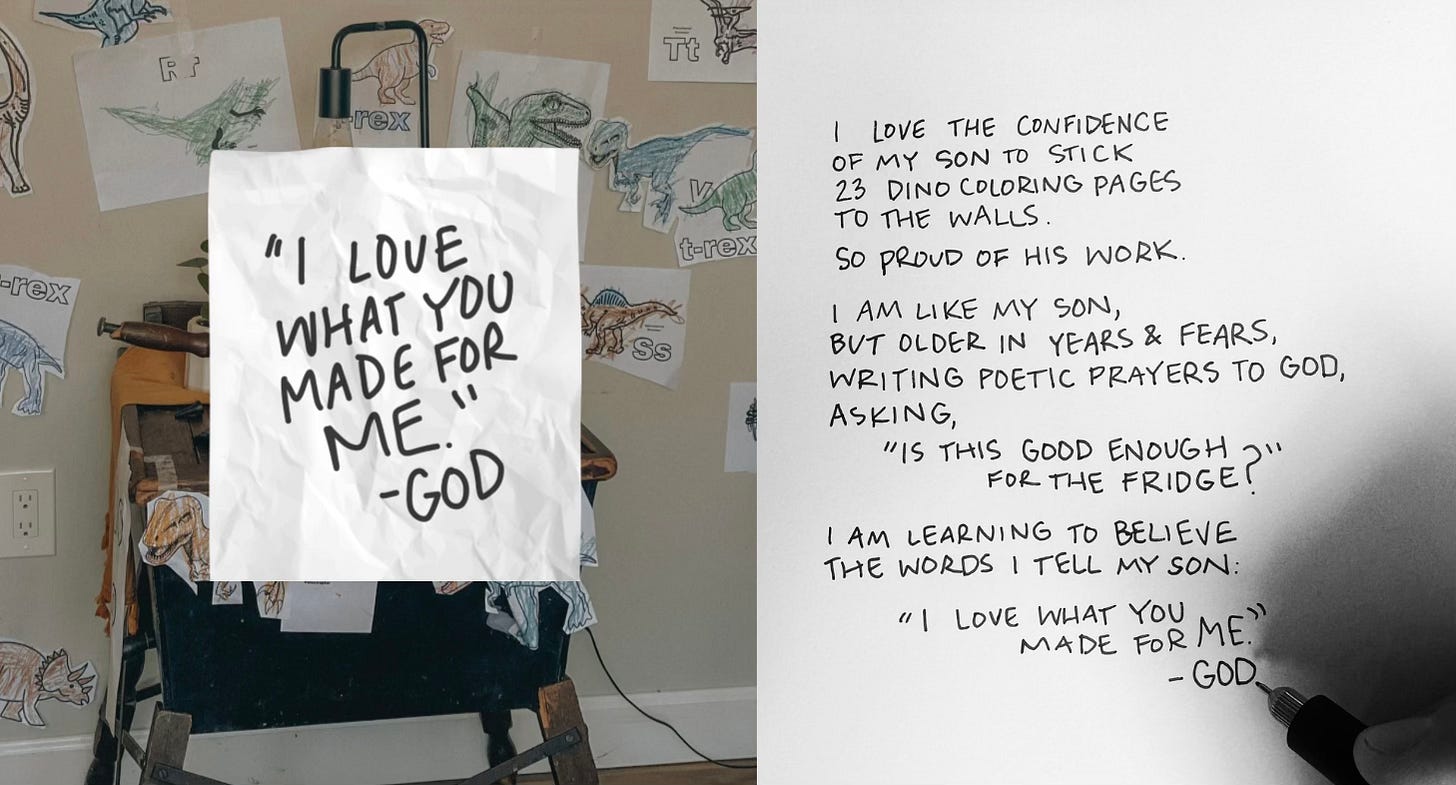 Rr
t-rex
Tt
V
t-rex
-rex
Ss
"I LOVE
WHAT YOU
MADE FOR
ME."
-GOD
I LOVE THE CONFIDENCE
OF MY SON TO STICK
23 DINO COLORING PAGES
TO THE WALLS.
SO PROUD OF HIS WORK.
I AM LIKE MY SON,
BUT OLDER IN YEARS & FEARS,
WRITING POETIC PRAYERS TO GOD,
ASKING,
"IS THIS GOOD ENOUGH
FOR THE FRIDGE?"
I AM LEARNING TO BELIEVE
THE WORDS I TELL MY SON:
"I LOVE WHAT YOU
MADE FOR ME."
- GOD